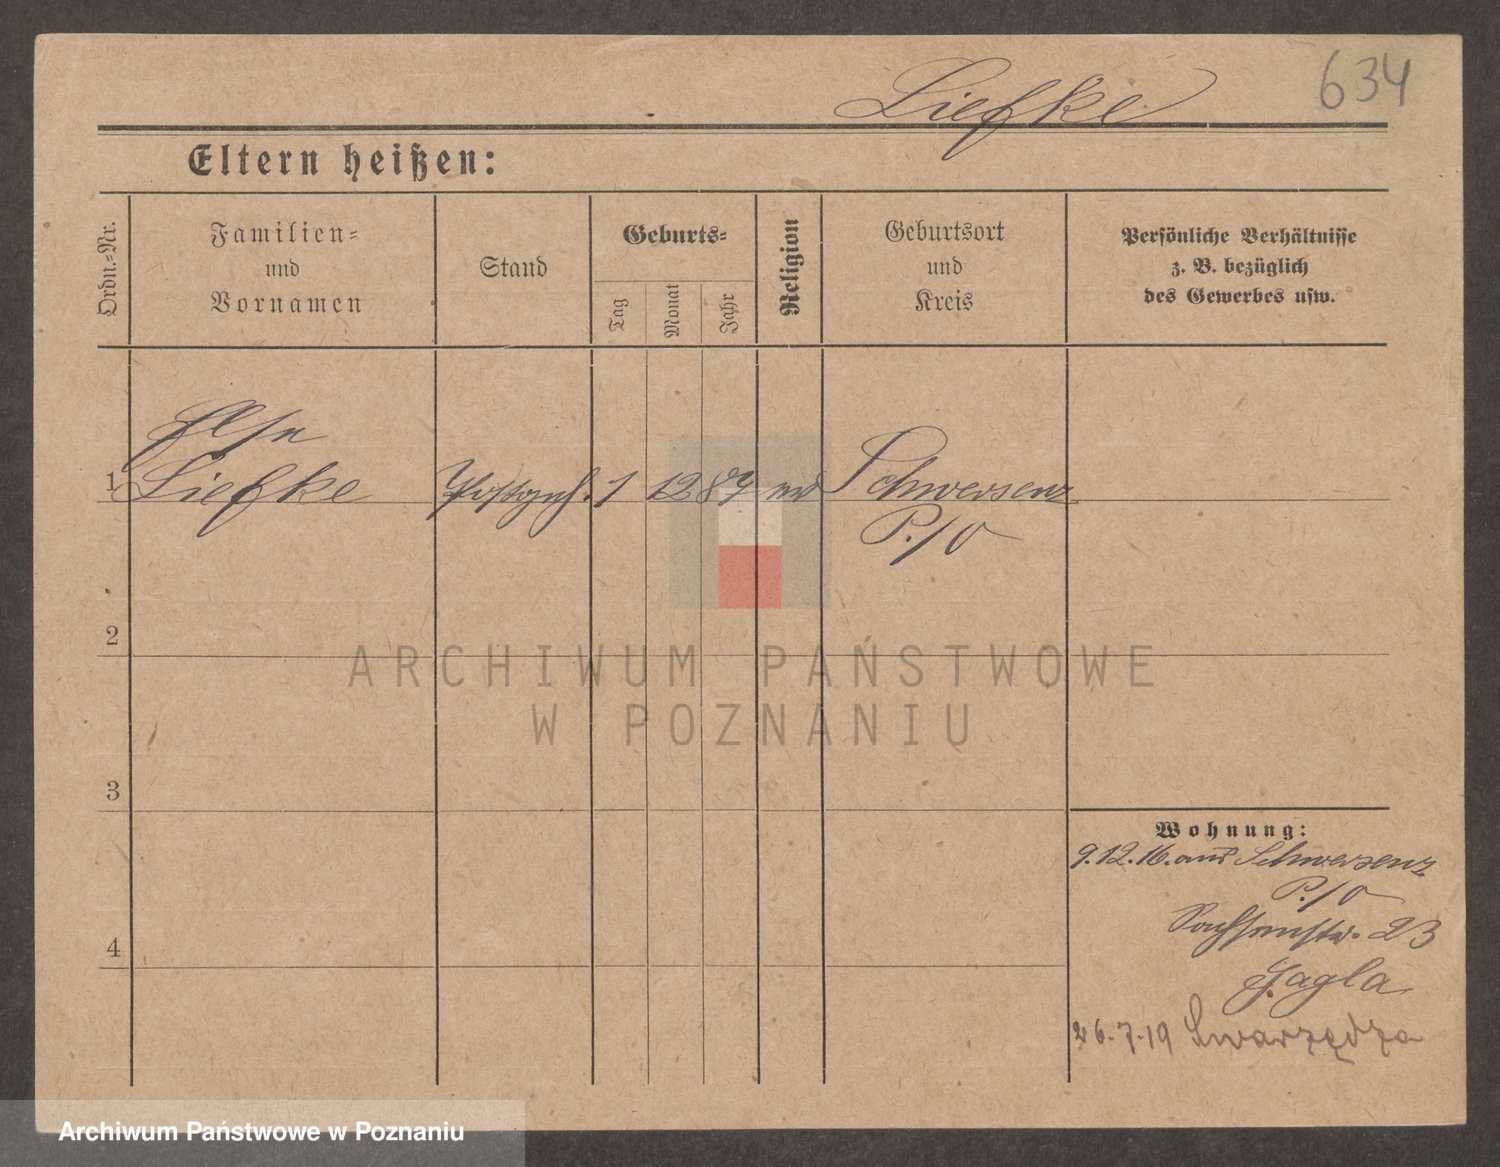 Liefke
634
Eltern heißen:
Ordn.-Nr.
Familien-
und
Vornamen
Stand
Geburts-
Tag
Monat
Jahr
Religion
Geburtsort
und
Kreis
Persönliche Verhältnisse
z. B. bezüglich
des Gewerbes usw.
Else
1 Liefke Postgeh. 1 12 87 Schwersenz
P./O
2
ARCHIWUM PAŃSTWOWE
W POZNANIU
3
Wohnung:
9.12.16. aus Schwersenz
P./O
Sachsenstr. 23
4
Jagla
26.7.19 Swarzędza
Archiwum Państwowe w Poznaniu